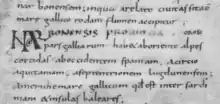 narbonensem, inquo arelite civitas sita
mare gallico rodam flumen accipitur.
NARBONENSIS PROVINCIA
pars galliarum habet aboriente alpes
cottidas abocciden te spaniam, acircio
aquitaniam, aseptentrionem lugdunensem
ameridie mare gallicum qd est inter sardi
niam & insulas baleares,